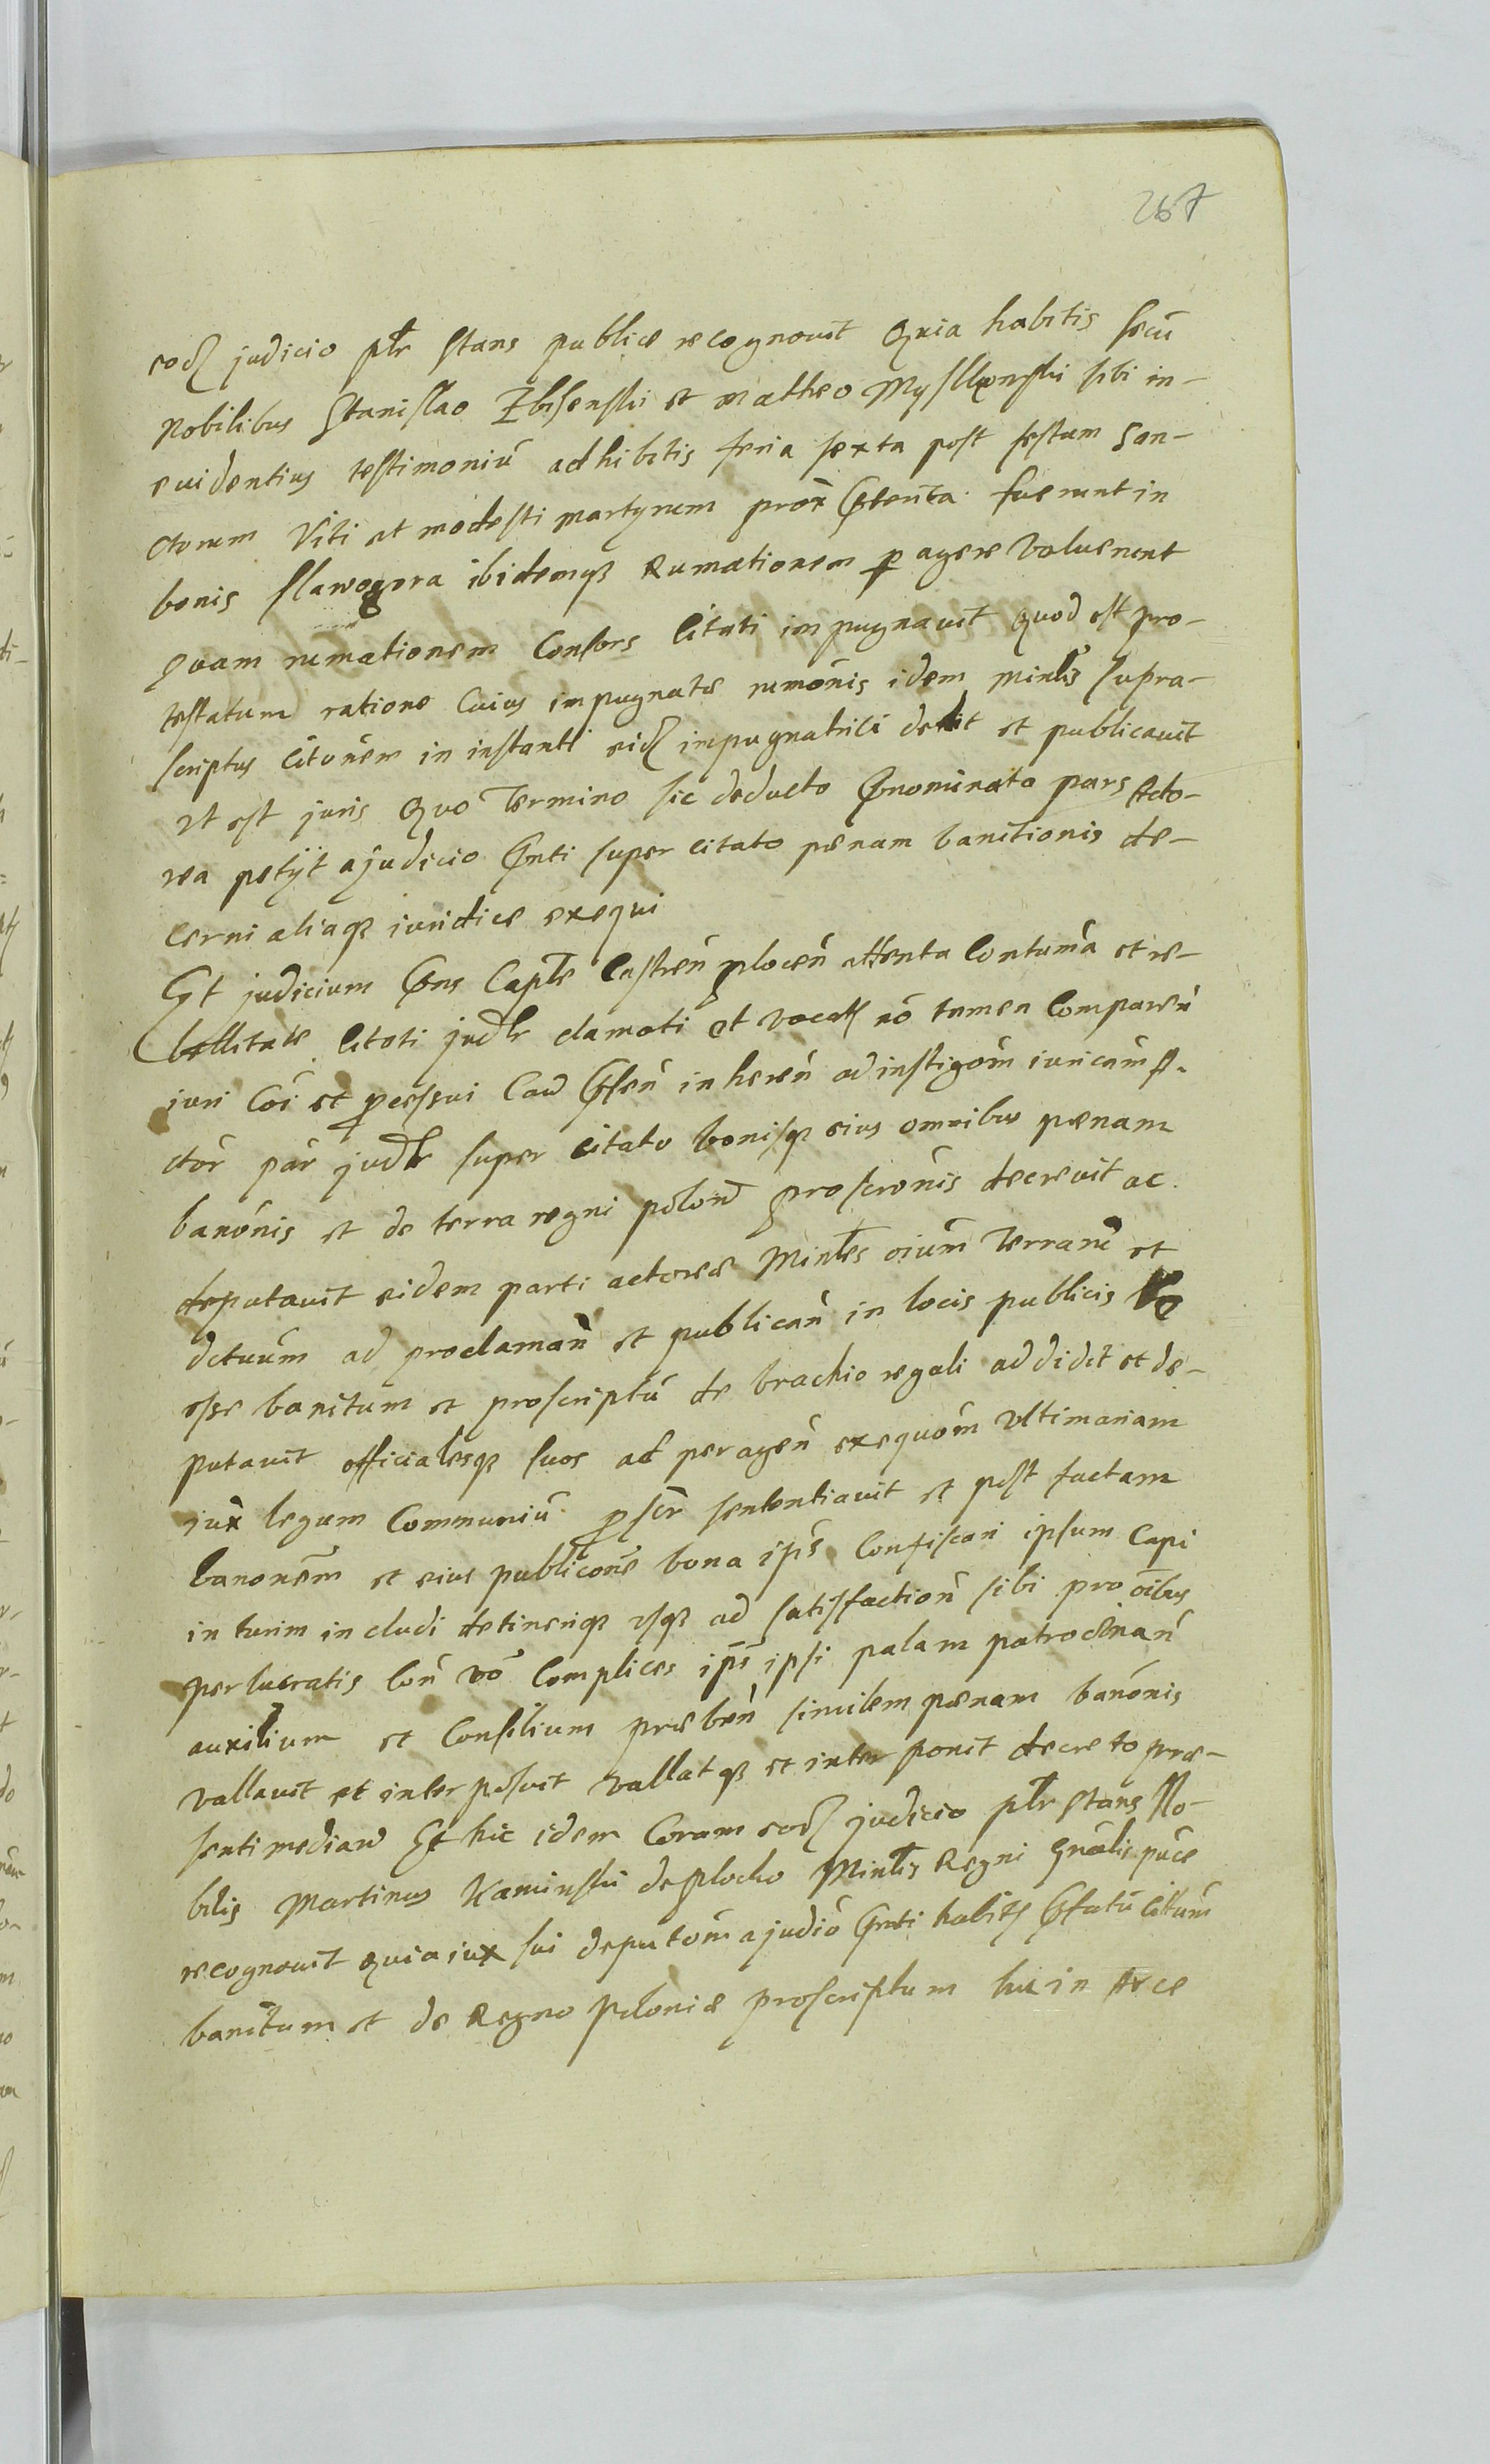 267
eod judicio plr stans publice recognovit Quia habitis secū
Nobilibus Stanislao Zbisenski et matheo Mysllowski sibi in-
evidentius testimoniū adhibitis feria sexta post festum San-
ctorum Viti et modesti martyrum prox pteritā fuerunt in
bonis slawogora ibidemq̨ Rumationem p agere voluerunt
Quam rumationem Consors Citati impugnavit quod est pro-
testatum ratione Cuius impugnatæ rumōnis idem minlis supra-
scriptus Citōnem in instanti eid impugnatrici dedit et publicavit
vt est juris Quo Termino sic deducto pnominata pars Acto-
rea petÿt a judicio pnti super citato pænam banitionis de-
cerni aliaq̨ iuridice exequi
Et judicium pns Captle Castreń plocen̄ attenta Contumā et re-
bellitate Citati judlr clamati et vocati nō tamen Comparen̄
iuri Cōi et pcessui Caus pīsen̄ inheren̄ ad instigōm iuricām A-
ctōr pār judlr super citato bonisq̨ eius omnibus pænam
banōnis et de terra regni polon̄ proscrōnis decrevit ac
deputavit eidem parti actoreæ Minlles oium Terrarū et
dctuum ad proclaman̄ et publican̄ in locis publicis
esse banitum et proscriptū de brachio regali addidit et de-
putavit officialesq̨ suos ad peragen̄ exequōm Vltimariam
iux legum Communiū pscr sententiavit et post factam
banonem̄ et eius publicōne bona ips Confiscari ipsum Capi
in turim includi detineriq̨ vsq̨ ad satisfactiōn sibi pro oibus
perlucratis Con̄ vō Complices ips ipsi palam patrocinan̄
auxilium et Consilium præben̄ similem pænam banōnis
vallavit et interposuit vallatq̨ et interponit decreto præ-
senti median̄ Et hic idem Coram eod judicio plr stans No-
bilis Martinus Kaminski de plocko Minlis Regni gnālis puce
recognovit quia iux sui deputōm a judiō pnti habit pfatū Cittum
banitum et de Regno poloniæ proscriptum hic in Arce